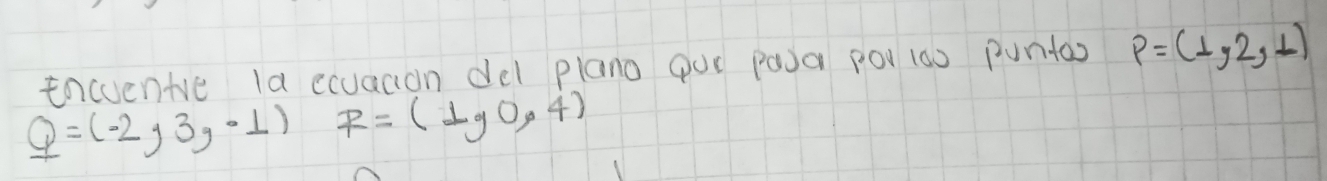 Encuentre la ecuacion del plano que pasa por los puntos P=(1,2,1)
Q=(-2,3,-1) R=(1,0,4)